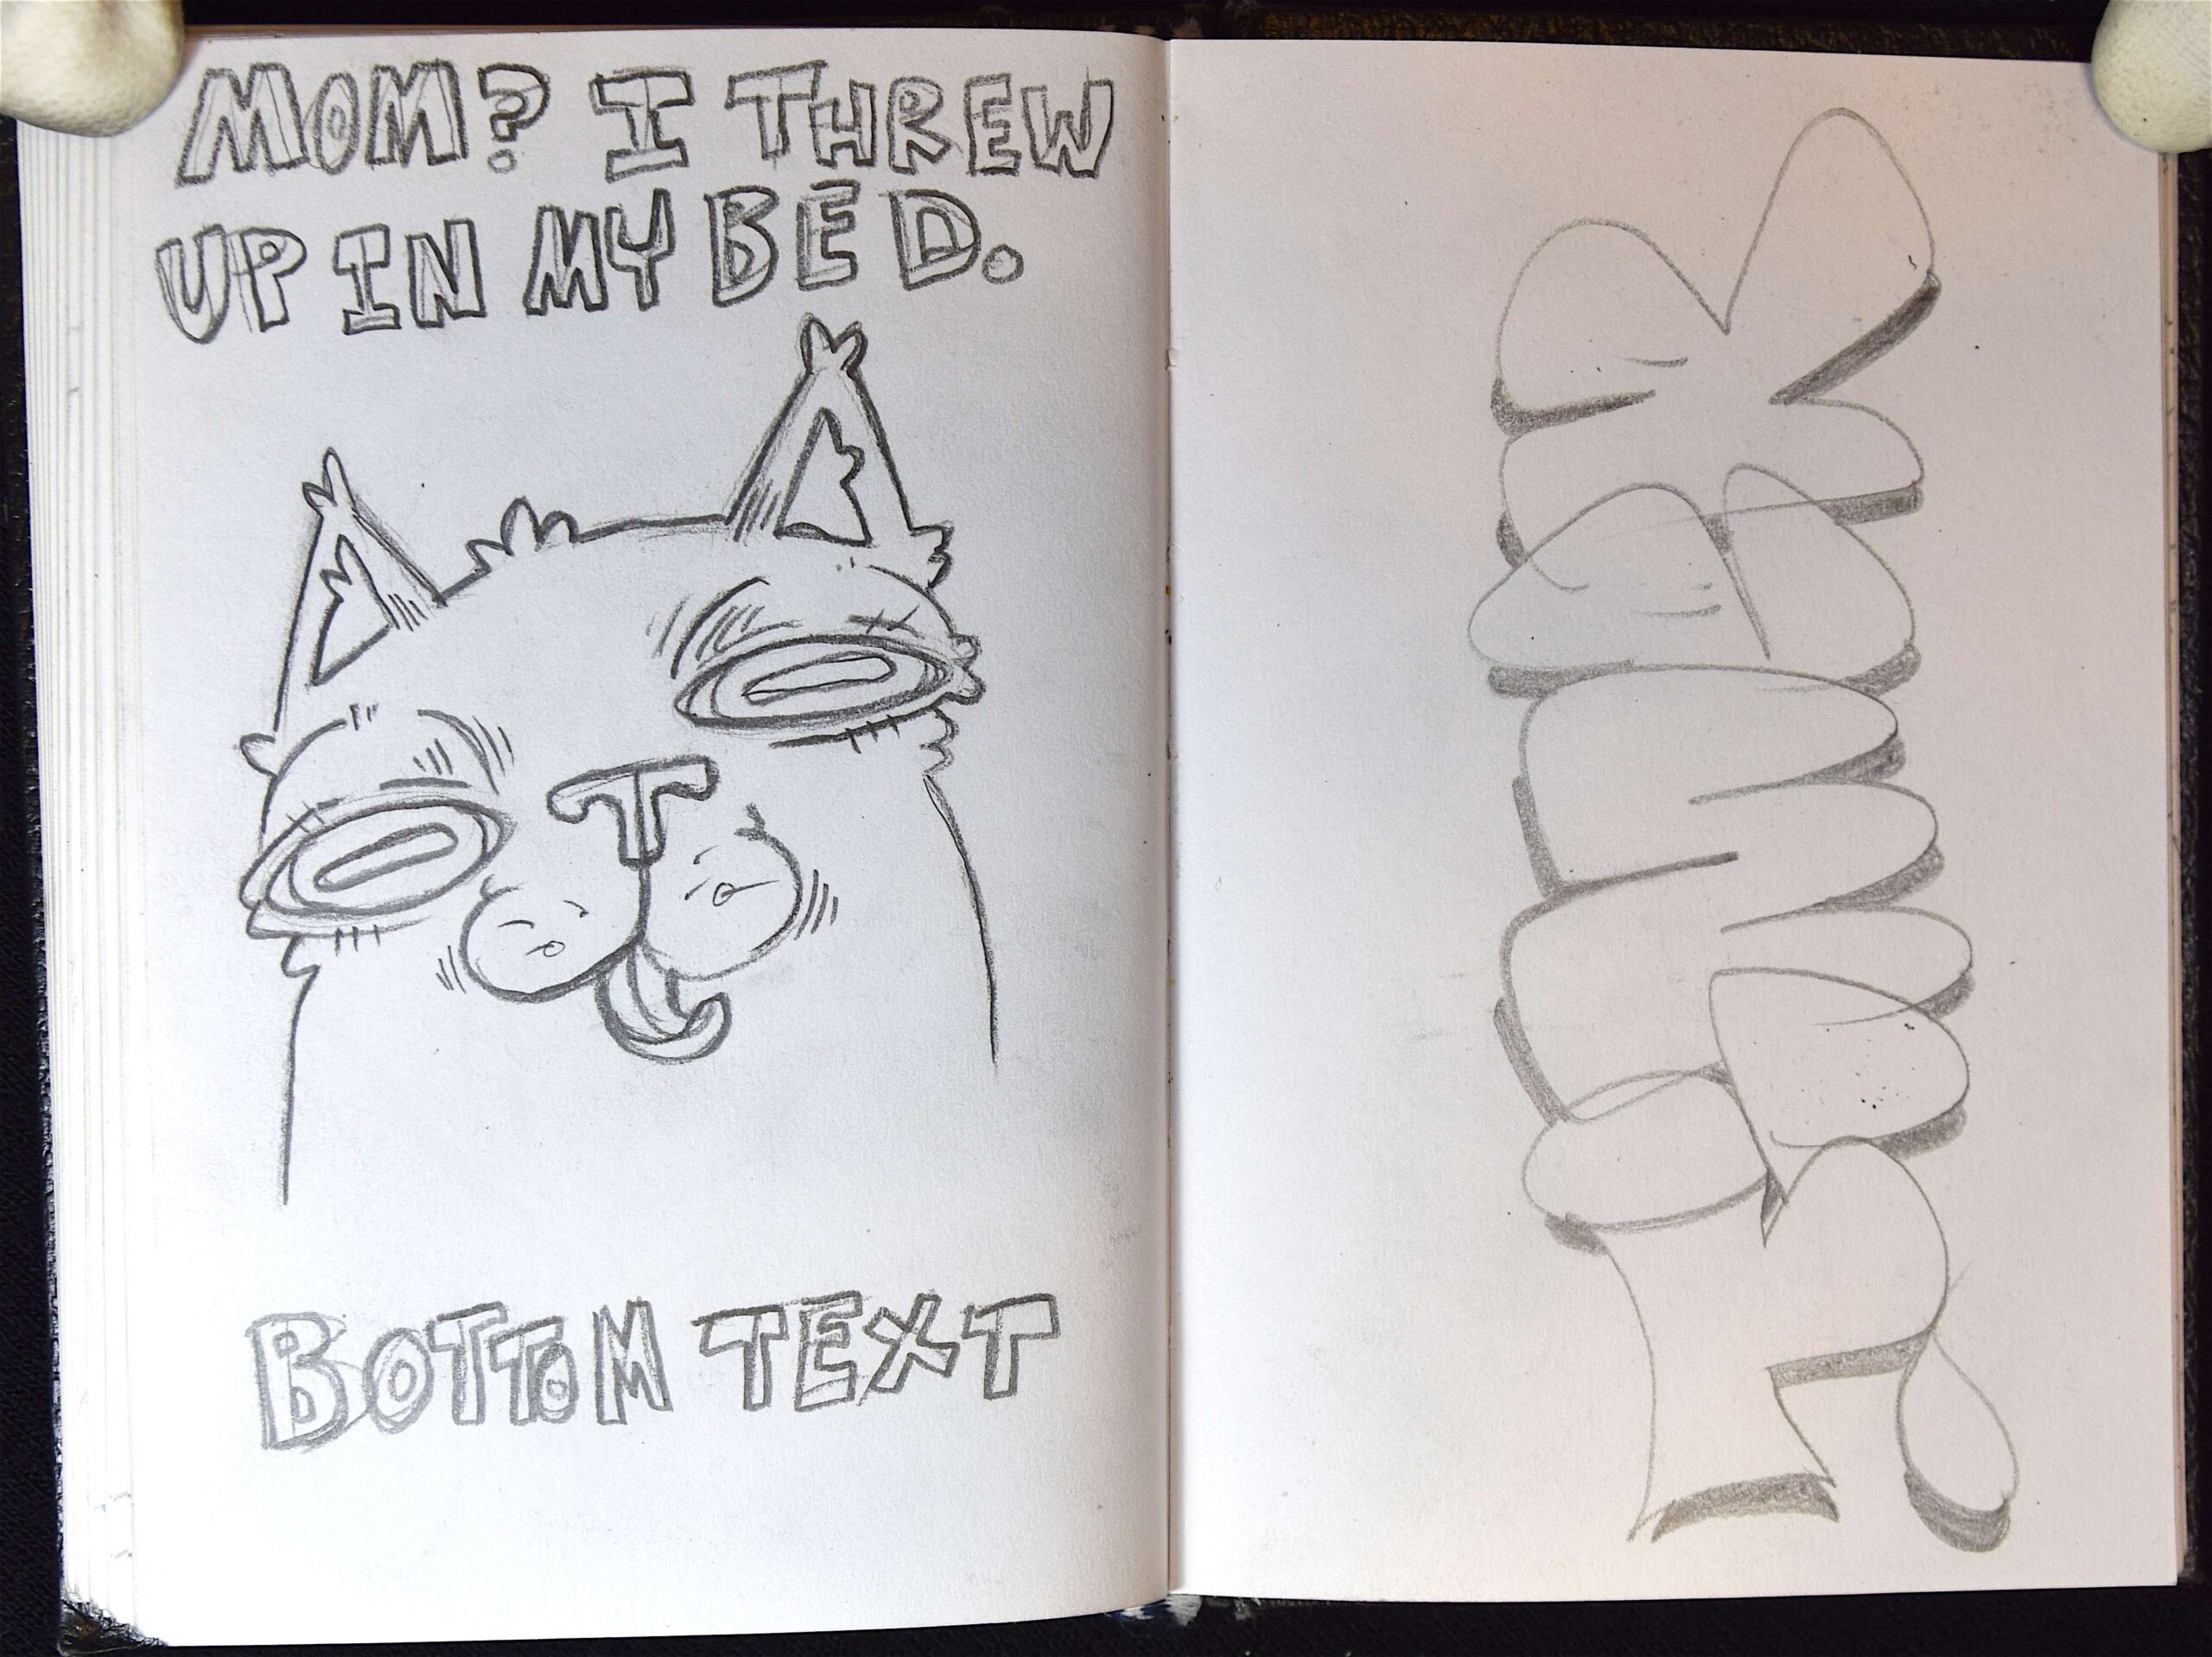 MOM? I THREW
UP IN MY BED.
BOTTOM TEXT